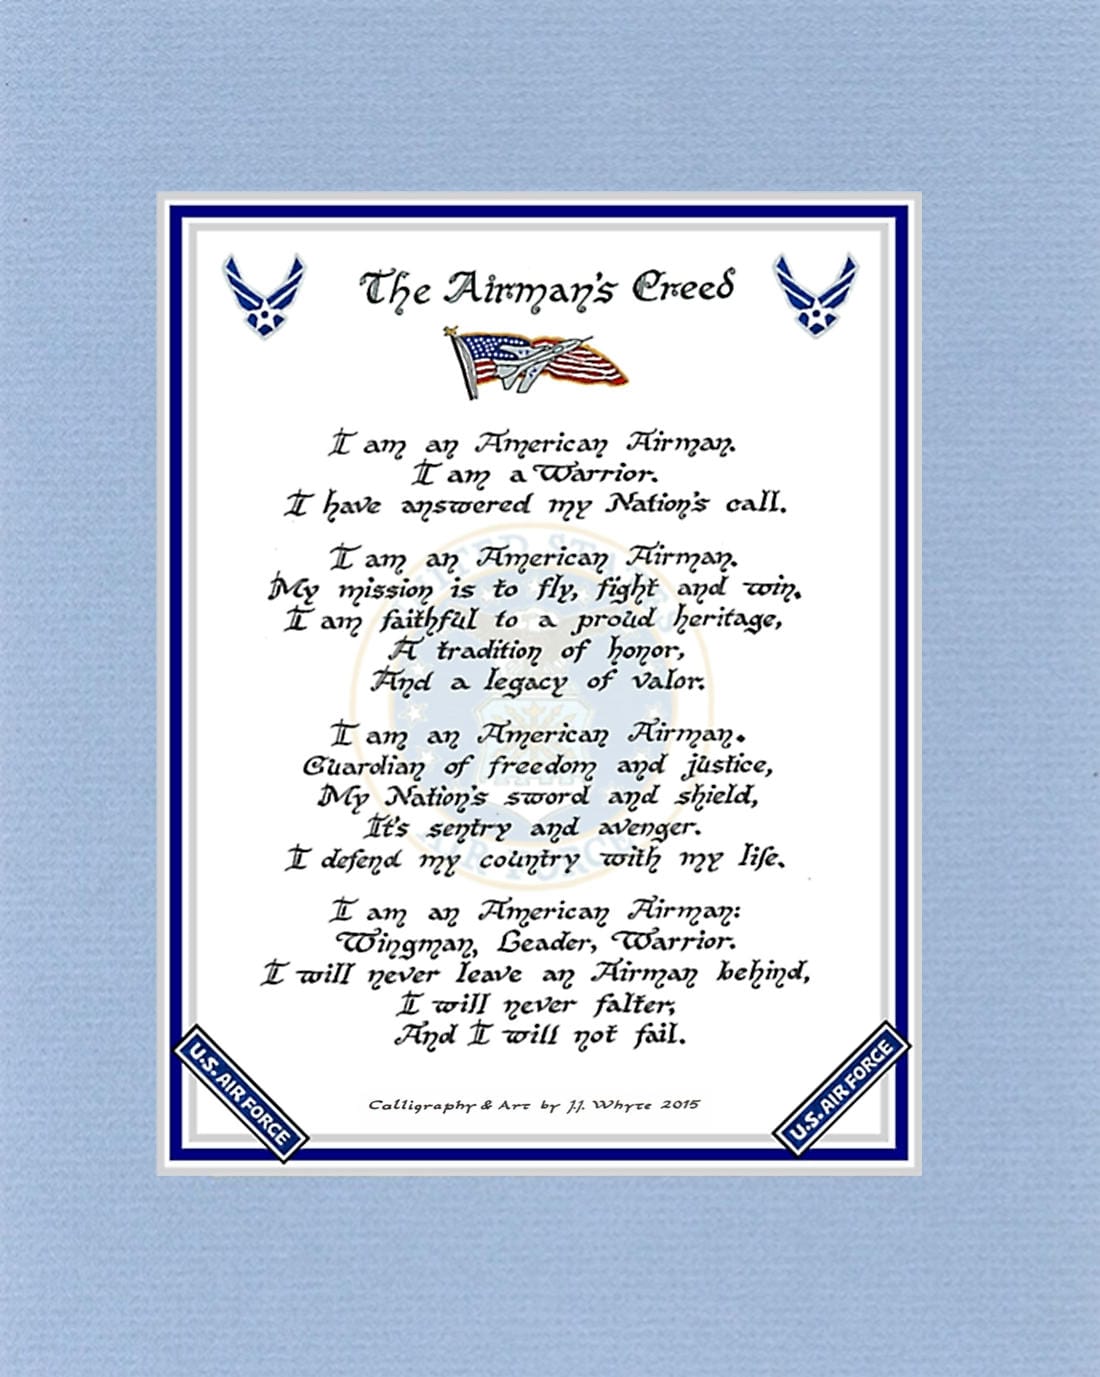 The Airman's Creed
I am an American Airman.
I am a Warrior.
I have answered my Nation's call.
I am an American Airman.
My mission is to fly, fight and win.
I am faithful to a proud heritage,
A tradition of honor,
And a legacy of valor.
I am an American Airman.
Guardian of freedom and justice,
My Nation's sword and shield,
It's sentry and avenger.
I defend my country with my life.
I am an American Airman:
Wingman, Leader, Warrior.
I will never leave an Airman behind,
I will never falter,
And I will not fail.
U.S. AIR FORCE
U.S. AIR FORCE
Calligraphy & Art by J.J. Whyte 2015
UNITED STATES
AIR FORCE